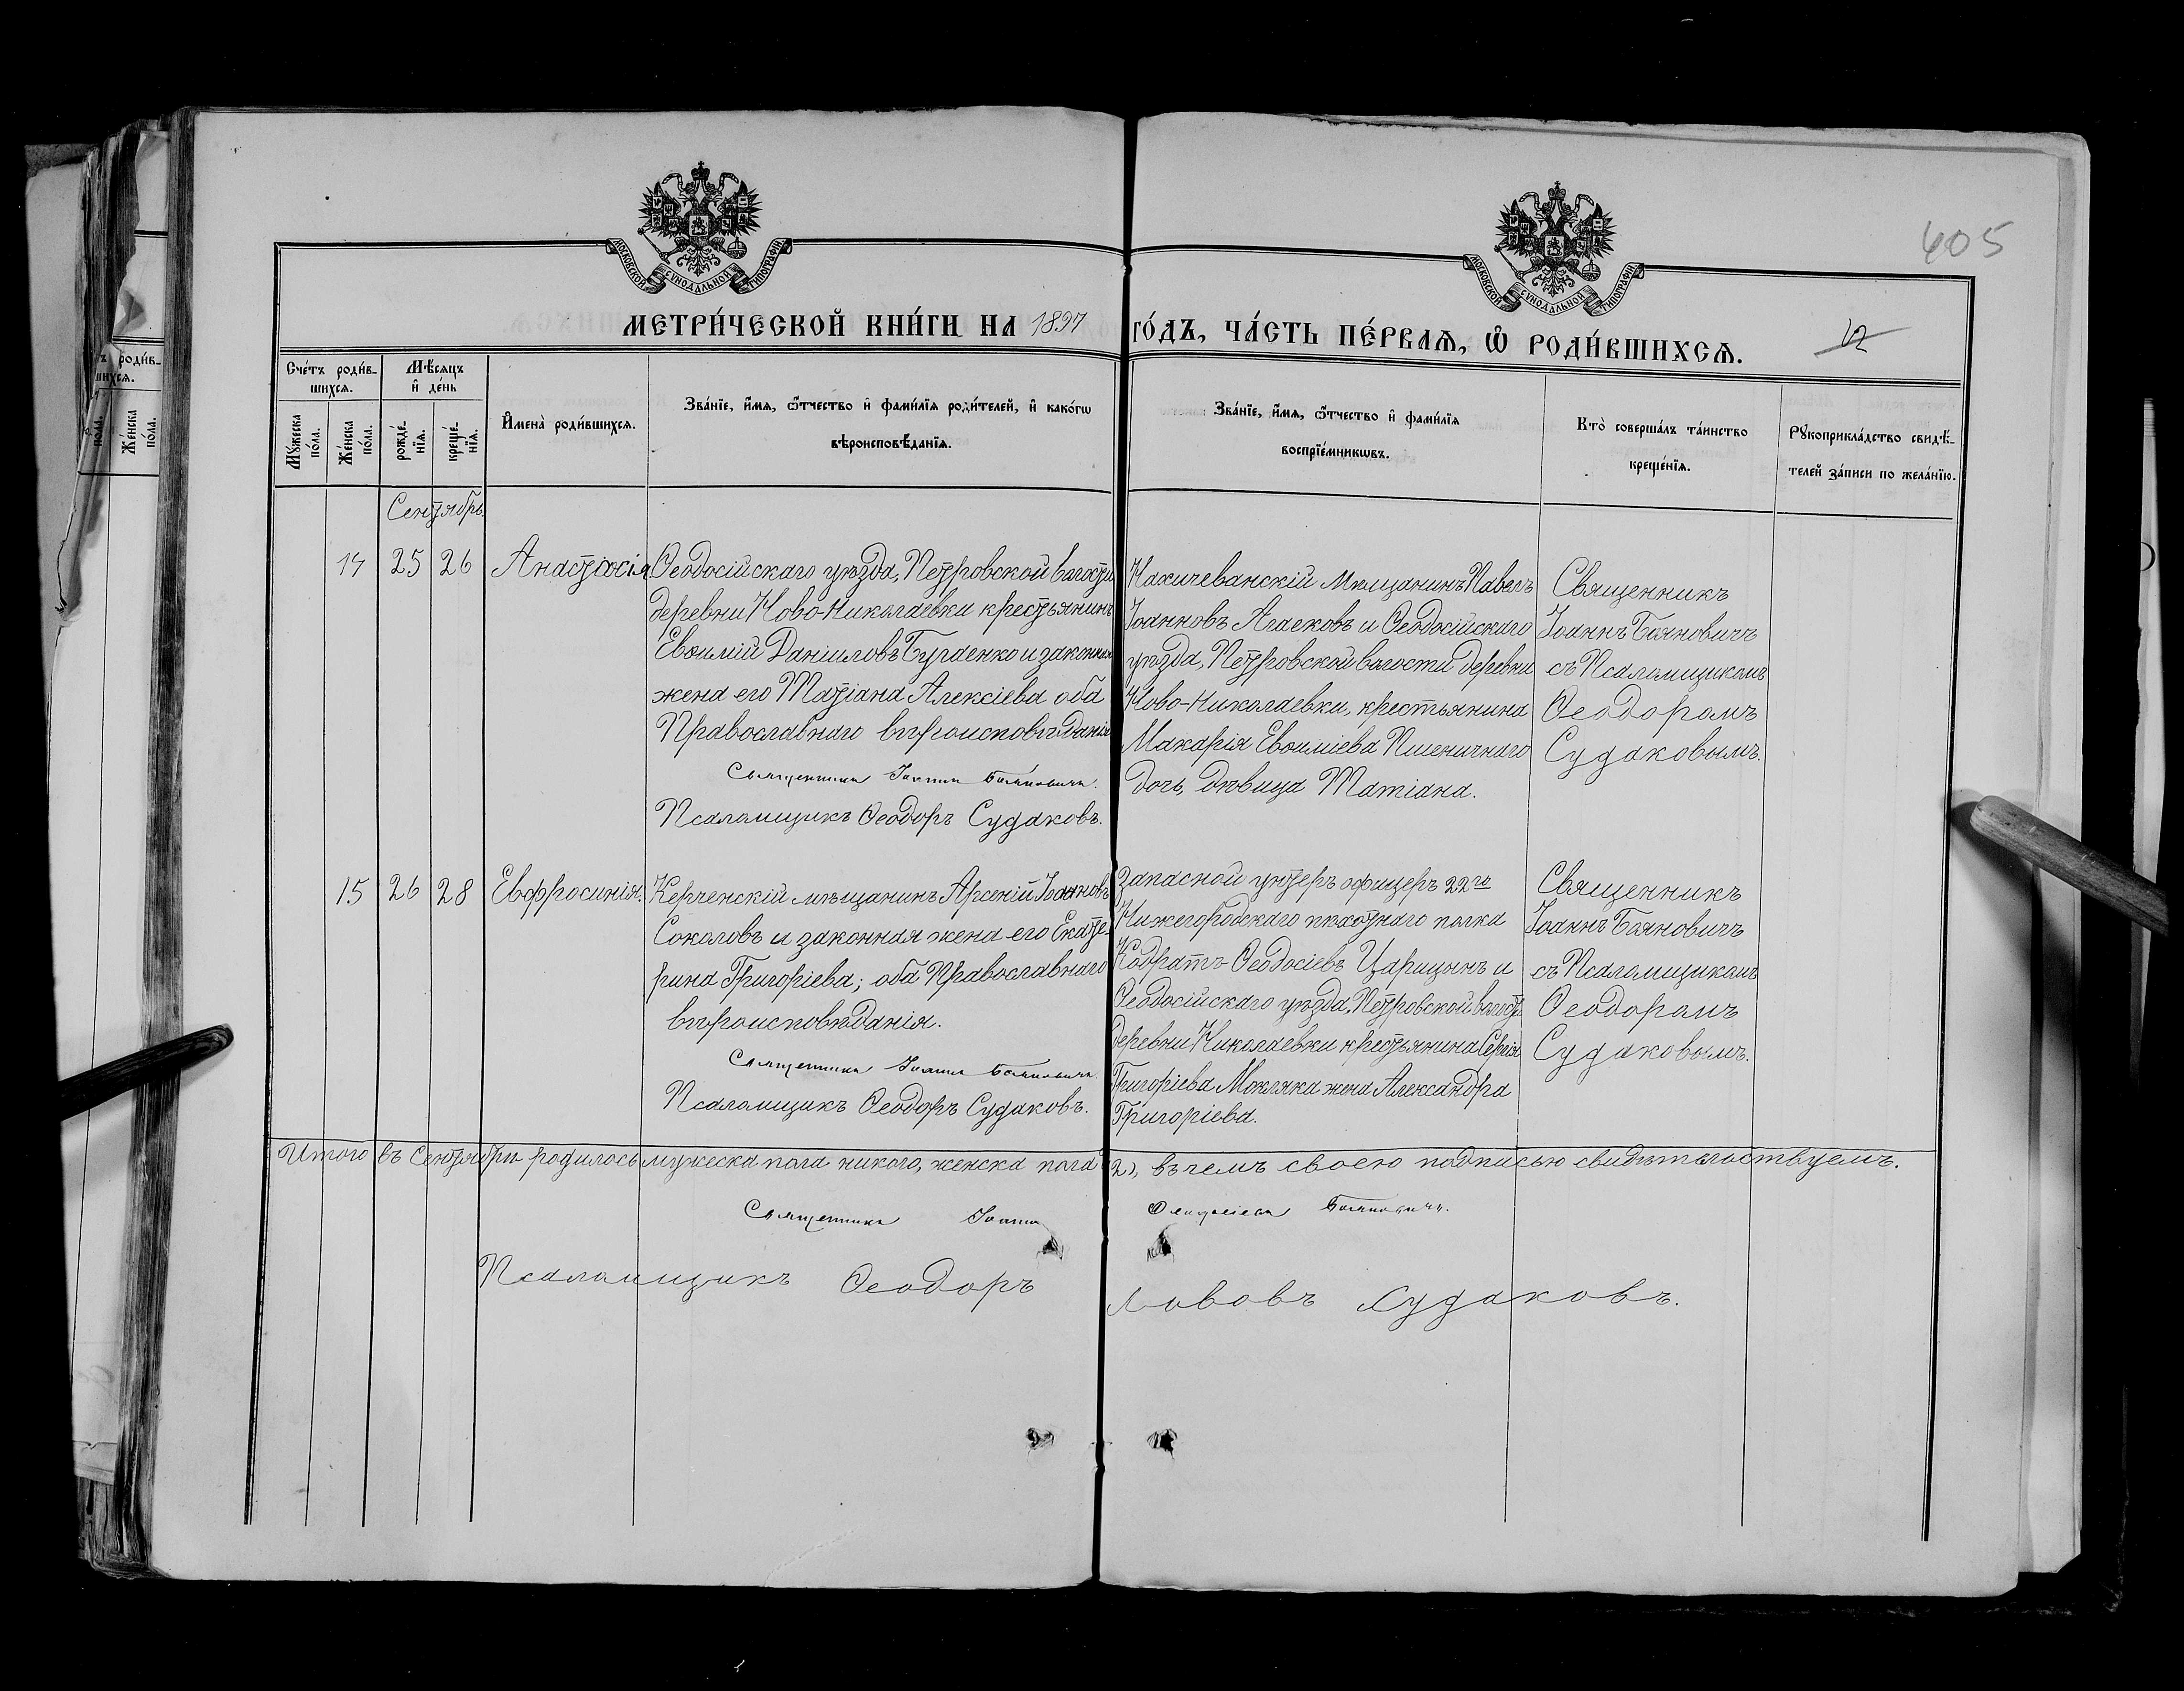 405
МОСКОВСКОЙ СѴНОДАЛЬНОЙ ТИПОГРАФІИ
МОСКОВСКОЙ СѴНОДАЛЬНОЙ ТИПОГРАФІИ
МЕТРИ́ЧЕСКОЙ КНИ́ГИ НА 1897 ГО́ДЪ, ЧА́СТЬ ПЕ́РВАѦ, Ѡ҆ РОДИ́ВШИХСѦ.
12
Сче́тъ роди́в-
шихсѧ.
Мꙋ́жеска по́ла.
Же́нска по́ла.
Мѣ́сѧцъ и҆ де́нь
рожде́-нїѧ.
креще́-нїѧ.
И҆мена̀ роди́вшихсѧ.
Зва́нїе, и҆́мѧ, ѻ҆́тчество и҆ фами́лїѧ роди́телей, и҆ како́гѡ
вѣроисповѣ́данїѧ.
Зва́нїе, и҆́мѧ, ѻ҆́тчество и҆ фами́лїѧ
воспрїе́мникѡвъ.
Кто̀ соверша́лъ та́инство
креще́нїѧ.
Рꙋкоприкла́дство свидѣ́-
телей за́писи по жела́нїю.
Сентябрь.
14 25 26 Анастасія
Ѳеодосійскаго уѣзда, Петровской волости
деревни Ново-Николаевки крестьянинъ
Евѳимій Даніиловъ Бугаенко и законная
жена его Татіана Алексіева оба
Православнаго вѣроисповѣданія
Священникъ Іоаннъ Баяновичъ.
Псаломщикъ Ѳеодоръ Судаковъ.
Нахичеванскій мѣщанинъ Павелъ
Іоанновъ Агасковъ и Ѳеодосійскаго
уѣзда, Петровской волости деревни
Ново-Николаевки, крестьянина
Макарія Евѳиміева Пшеничнаго
дочь, дѣвица Татіана.
Священникъ
Іоаннъ Баяновичъ
съ Псаломщикомъ
Ѳеодоромъ
Судаковымъ.
15 26 28 Евфросинія.
Керченскій мѣщанинъ Арсеній Іоанновъ
Соколовъ и законная жена его Екате-
рина Григоріева; оба Православнаго
вѣроисповѣданія.
Священникъ Іоаннъ Баяновичъ.
Псаломщикъ Ѳеодоръ Судаковъ.
Запасной унтеръ офицеръ 22го
Нижегородскаго пѣхотнаго полка
Кодратъ Ѳеодосіевъ Царицынъ и
Ѳеодосійскаго уѣзда, Петровской волост.
деревни Николаевки крестьянина Сергія
Григоріева Мокляка жена Александра
Григоріева.
Священникъ
Іоаннъ Баяновичъ
съ Псаломщикомъ
Ѳеодоромъ
Судаковымъ.
Итого въ Сентябрѣ родилось мужеска пола никого, женска пола 2), въ чемъ своею подписью свидѣтельствуемъ.
Священникъ Іоаннъ Ѳеодосіевъ Баяновичъ.
Псаломщикъ Ѳеодоръ Львовъ Судаковъ.